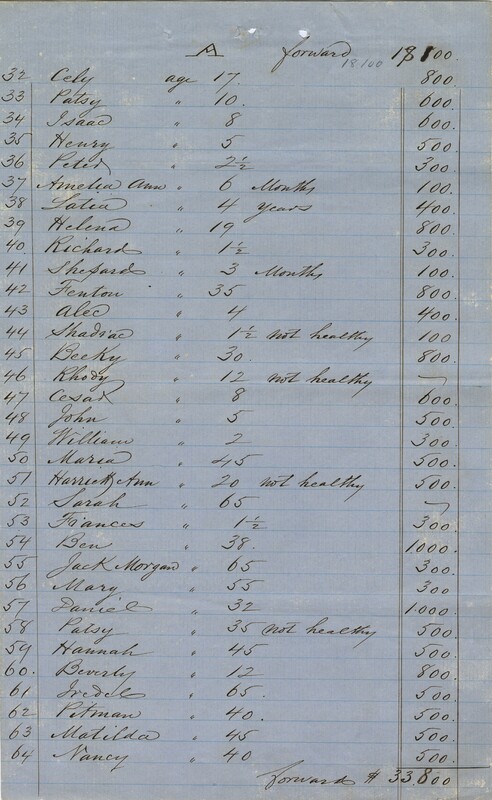 A forward 18100.
18100
32 Cely age 17. 800.
33 Patsy " 10. 600.
34 Isaac " 8 600.
35 Henry " 5 500.
36 Peter " 2½ 300.
37 Amelia Ann " 6 Months 100.
38 " 4 Years 400.
39 Helena " 19 800.
40 Richard " 1½ 300.
41 Shepard " 3 Months 100.
42 Fenton " 35 800.
43 Alec " 4 400.
44 Shadrac " 1½ not healthy 100
45 Becky " 30. 800.
46 Rhody " 12 not healthy —
47 Cesar " 8 600.
48 John " 5 500.
49 William " 2 300.
50 Maria " 45 500.
51 Harriett Ann " 20 not healthy 500.
52 Sarah " 65 —
53 Frances " 1½ 300.
54 Ben " 38. 1000.
55 Jack Morgan " 65 300.
56 Mary " 55 300
57 Daniel " 32 1000.
58 Patsy " 35 not healthy 500.
59 Hannah " 45 500.
60. Beverly " 12 800.
61 " 65. 500.
62 Pitman " 40. 500.
63 Matilda " 45 500.
64 Nancy " 40 500.
forward $ 33.800